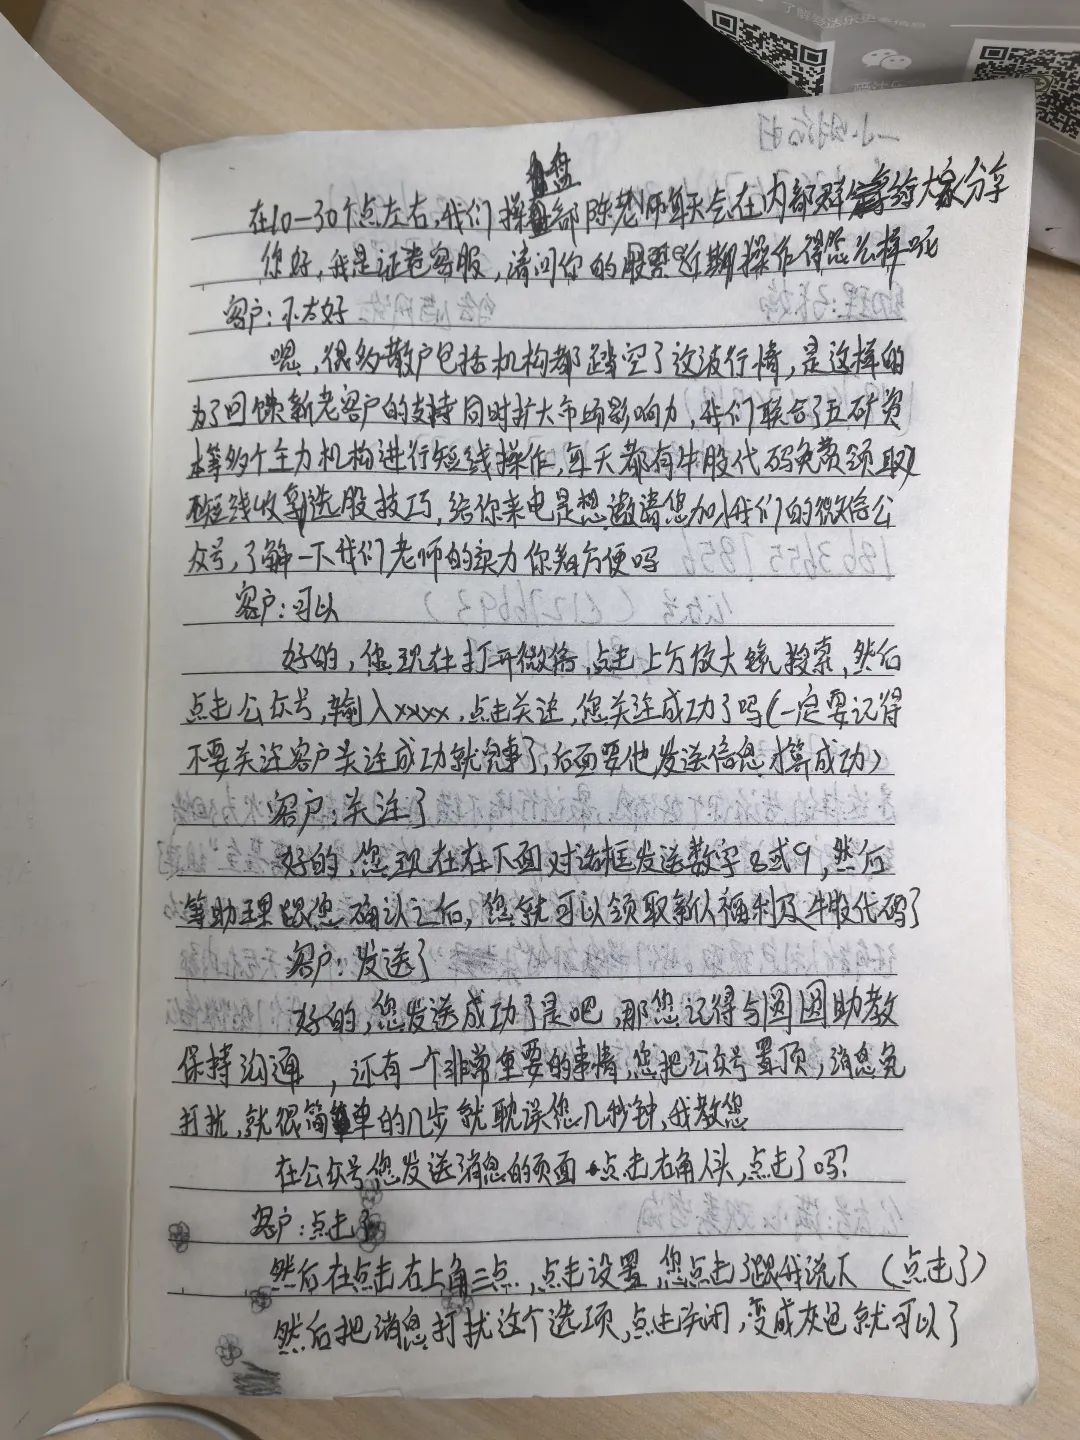 了解多法乐更多信息
盘
在10—30个点左右,我们操盘部陈老师每天会在内部群给大家分享
你好,我是证卷客服,请问你的股票近期操作得怎么样呢
客户:不太好
嗯,很多散户包括机构都踏空了这波行情,是这样的
为了回馈新老客户的支持同时扩大市场影响力,我们联合了五矿资
本等多个主力机构进行短线操作,每天都有牛股代码免费领取
短线收割选股技巧,给你来电是想邀请您加入我们的微信公
众号,了解一下我们老师的实力你看方便吗
客户:可以
好的,您现在打开微信,点击上方放大镜搜索,然后
点击公众号,输入xxxx,点击关注,您关注成功了吗(一定要记得
不要关注客户关注成功就完事了,后面要他发送信息才算成功)
客户:关注了
好的,您现在在下面对话框发送数字8或9,然后
等助理跟您确认之后,您就可以领取新人福利及牛股代码了
客户:发送了
好的,您发送成功了是吧,那您记得与圆圆助教
保持沟通,还有一个非常重要的事情,您把公众号置顶,消息免
打扰,就很简单的几步就耽误您几秒钟,我教您
在公众号您发送消息的页面 点击右角人头,点击了吗?
客户:点击了
然后在点击右上角三点,点击设置,您点击了跟我说下(点击了)
然后把消息打扰这个选项,点击关闭,变成灰色就可以了